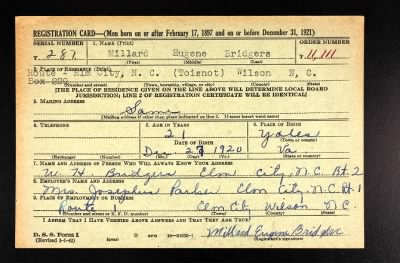 REGISTRATION CARD—(Men born on or after February 17, 1897 and on or before December 31, 1921)
SERIAL NUMBER 1. NAME (Print) ORDER NUMBER
T 287 Millard Eugene Bridgers T 11,111
(First) (Middle) (Last)
2. PLACE OF RESIDENCE (Print)
Route - Elm City, N. C. (Toisnot) Wilson N. C.
Box 220
(Number and street) (Town, township, village, or city) (County) (State)
[THE PLACE OF RESIDENCE GIVEN ON THE LINE ABOVE WILL DETERMINE LOCAL BOARD
JURISDICTION; LINE 2 OF REGISTRATION CERTIFICATE WILL BE IDENTICAL]
3. MAILING ADDRESS
Same
[Mailing address if other than place indicated on line 2. If same insert word same]
4. TELEPHONE 5. AGE IN YEARS 6. PLACE OF BIRTH
21 Yales
DATE OF BIRTH
Dec 27 1920 Va
(Exchange) (Number) (Mo.) (Day) (Yr.) (State or country)
7. NAME AND ADDRESS OF PERSON WHO WILL ALWAYS KNOW YOUR ADDRESS
W. H. Bridgers Elm City, N.C. Rt. 2
8. EMPLOYER'S NAME AND ADDRESS
Mrs. Josephine Parker Elm City, N.C. Rt. 1
9. PLACE OF EMPLOYMENT OR BUSINESS
Route 1 Elm Ct. Wilson N.C.
(Number and street or R. F. D. number) (Town) (County) (State)
I AFFIRM THAT I HAVE VERIFIED ABOVE ANSWERS AND THAT THEY ARE TRUE.
D. S. S. Form 1
(Revised 1-1-42) GPO 16—21630-1 Millard Eugene Bridgers
(Registrant's signature)